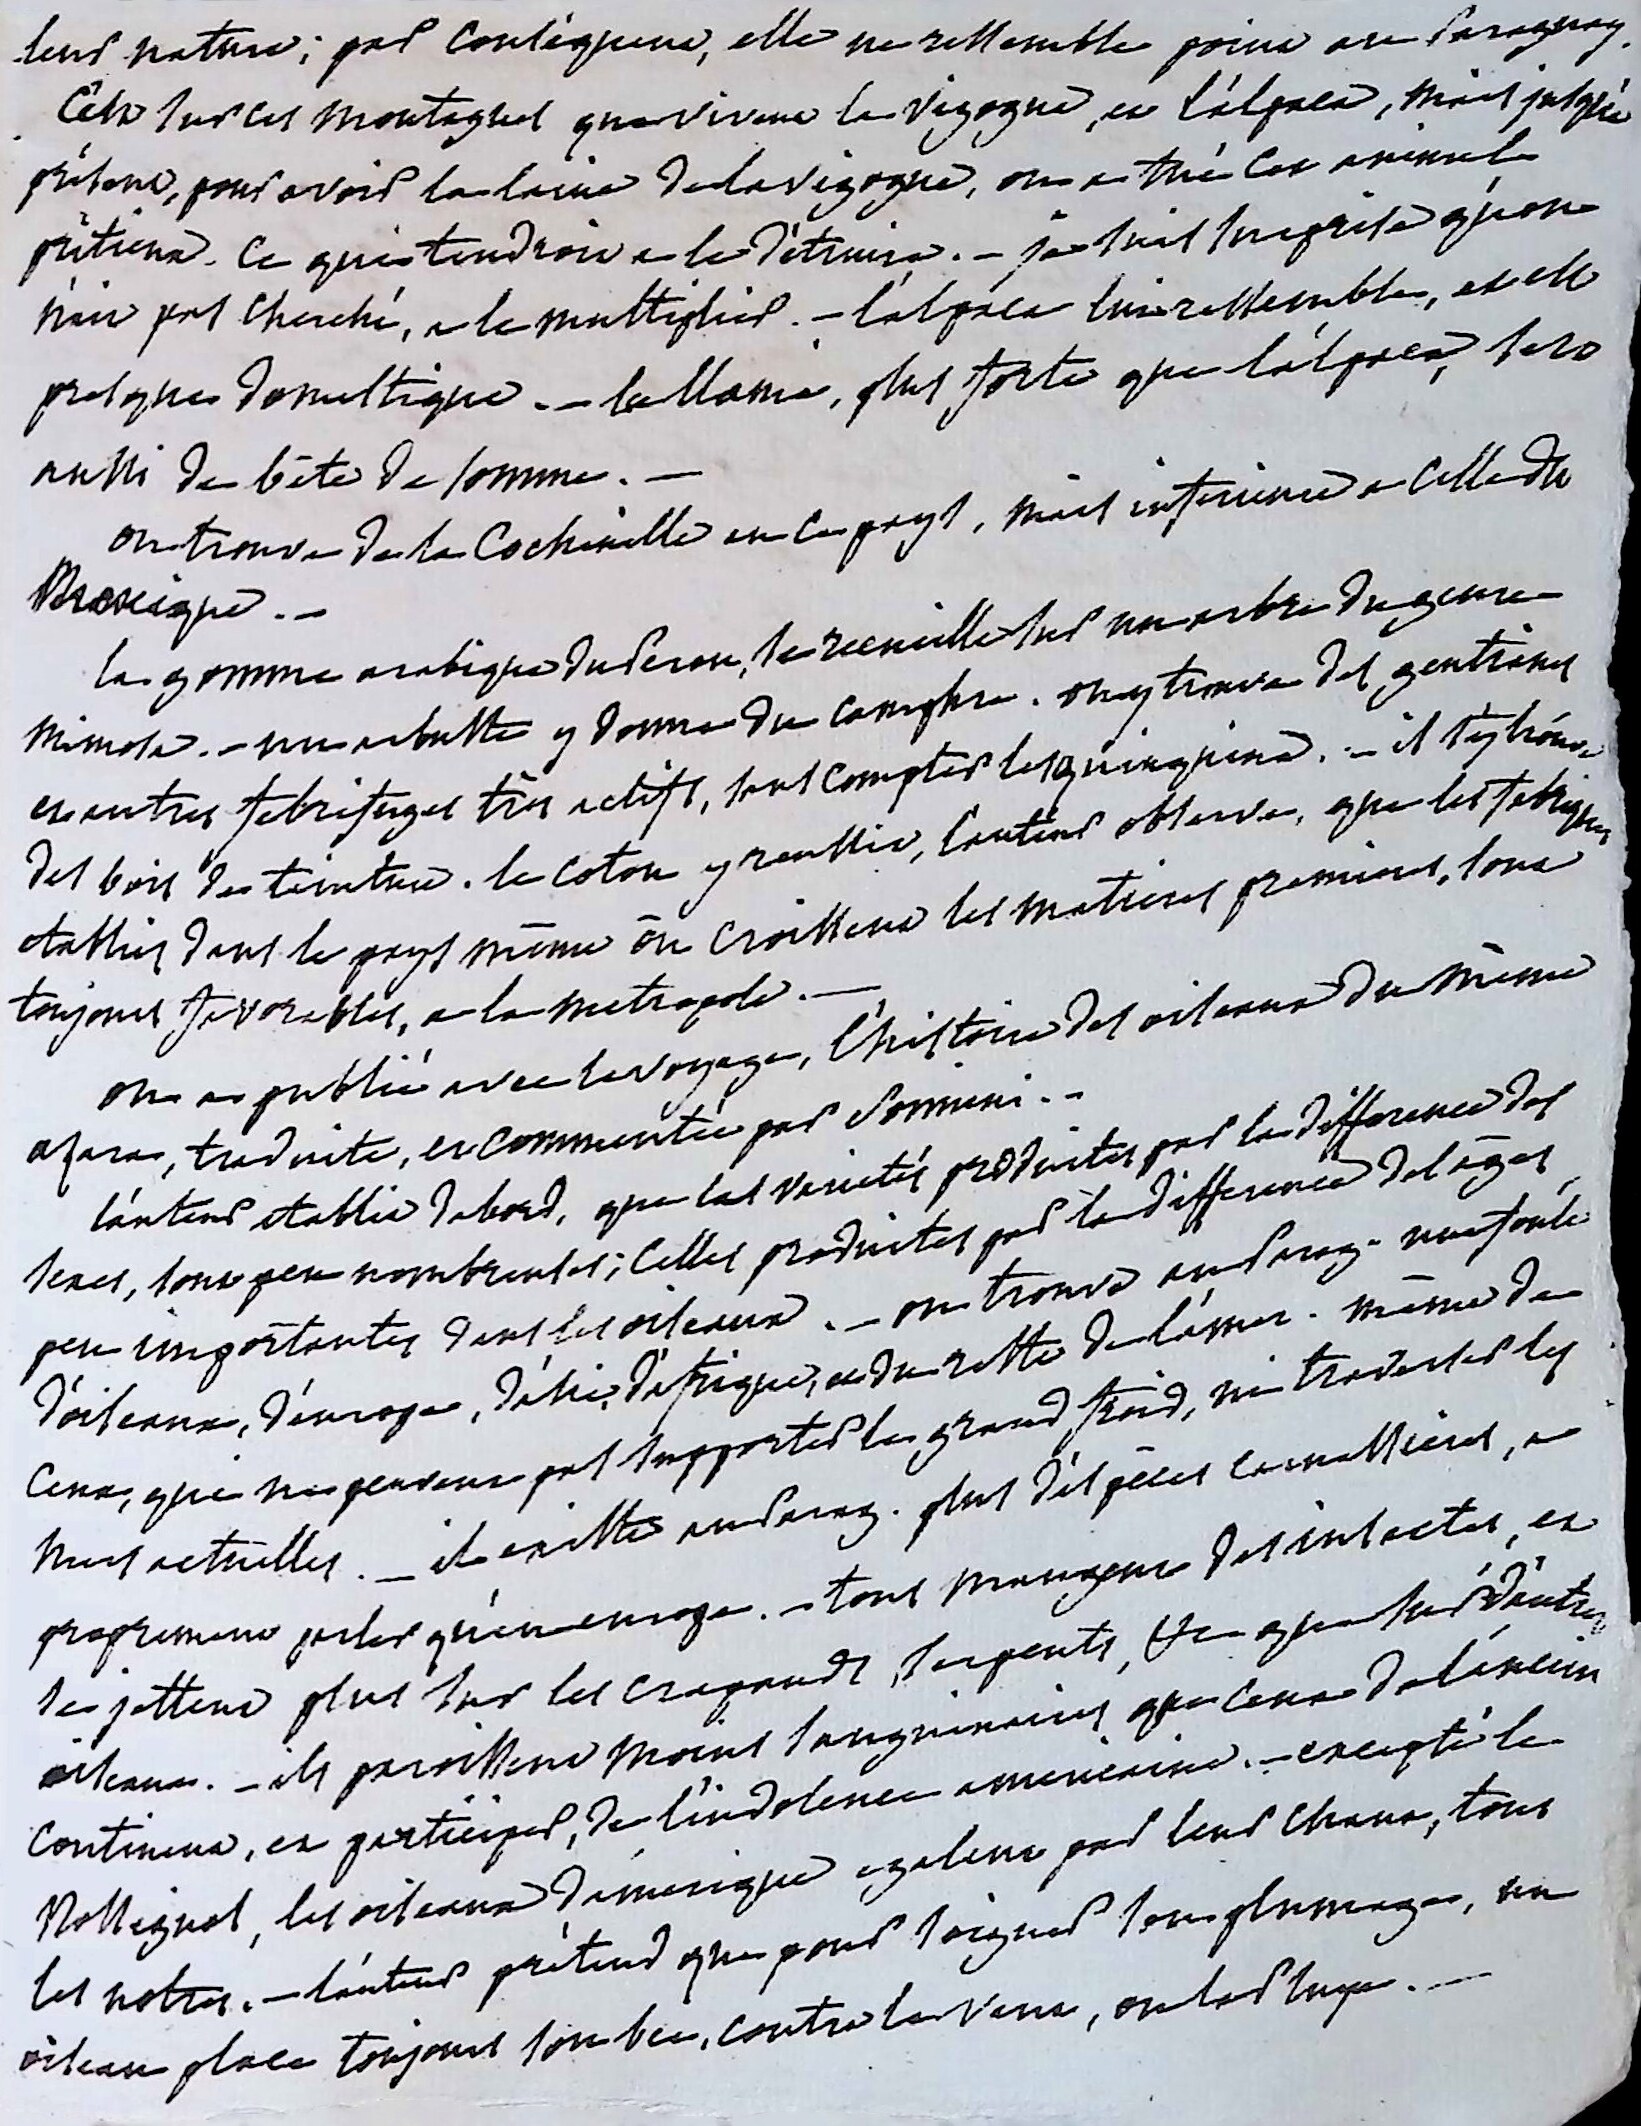 leur nature; par conséquent, elle ne ressemble point au Paraguay.
C'est sur ces montagnes que vivent la vigogne, et l'alpaca, mais jusqu'à
présent, pour avoir la laine de la vigogne, on a tué cet animal
. ce qui tendroit a le détruire. – je suis surprise qu'on
n'ait pas cherché, a le multiplier. – l'alpaca lui ressemble, et est
presque domestique. – le llama, plus forte que l'alpaca, sert
aussi de bête de somme. –
on trouve de la Cochenille en ce pays, mais inferieure a celle du
Mexique. –
la gomme arabique du Perou, se recueille sur un arbre du genre
mimosa. – un arbuste y donne du camphre. on y trouve des gentianes
et autres febrifuges très actifs, sans compter les quinquina. – il s'y trouve
des bois de teinture. le coton y reussit, l'auteur observe, que les fabriques
etablies dans le pays même où croissent les matieres premieres, sont
toujours favorables, a la metropole. –
on a publié avec le voyage, l'histoire des oiseaux du même
azara, traduite, et commentée par Sonnini. –
l'auteur etablit dabord, que les varietés produites par la difference des
sexes, sont peu nombreuses; celles produites par la difference des ages
peu importantes dans les oiseaux. – on trouve au Parag. une foule
d'oiseaux, d'europe, d'asie, d'afrique, et du reste de l'amer. même de
ceux, qui ne peuvent pas supporter le grand froid, ni traverser les
mers actuelles. – il existe au Parag. plus d'espèces carnassieres, a
proprement parler qu'en europe. – tous mangent des insectes, et
se jettent plus sur les crapauds, serpents, &c que sur d'autres
oiseaux. – ils paroissent moins sanguinaires que ceux de l'ancien
continent, et participer, de l'indolence americaine. – excepté le
Rossignol, les oiseaux d'amerique egalent par leur chant, tous
les notres. – l'auteur prétend que pour soigner son plumage, un
oiseau place toujours son bec, contre le vent,